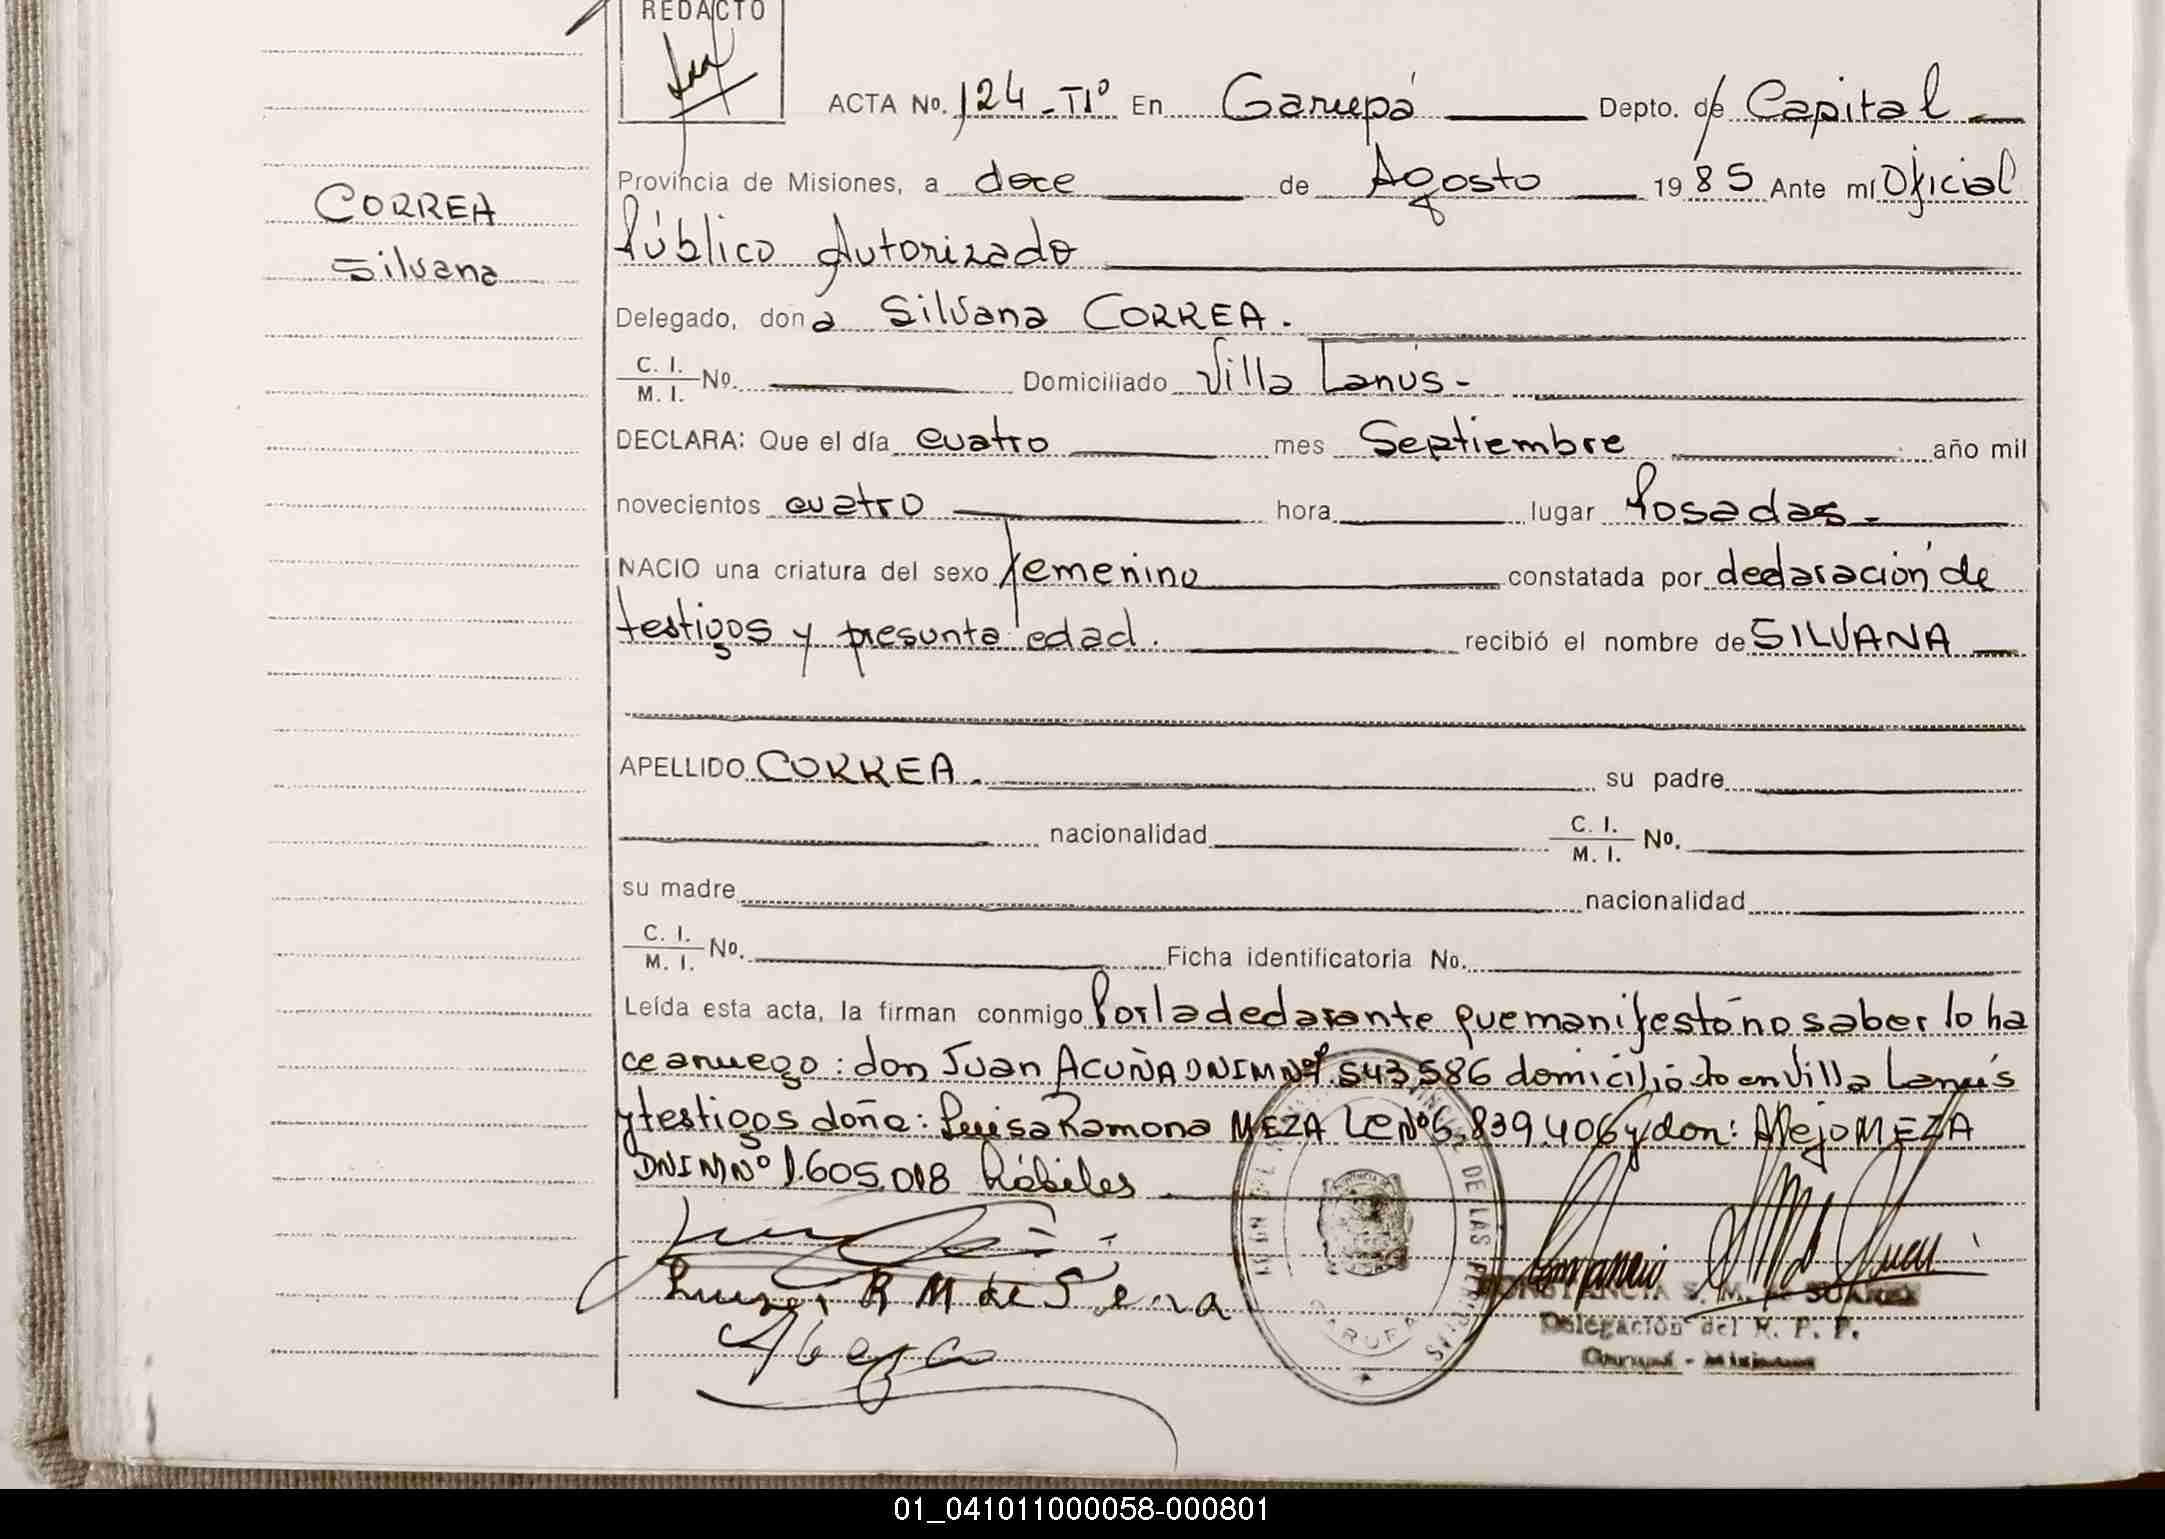 REDACTO
ACTA No. 124 - Tº I En Garupá Depto. de Capital
Provincia de Misiones, a doce de Agosto 1985 Ante mí Oficial
Público Autorizado
CORREA
Silvana
Delegado, dona Silvana CORREA.
C. I.
M. I. No. Domiciliado Villa Lanús -
DECLARA: Que el día cuatro mes Septiembre año mil
novecientos cuatro hora lugar Posadas -
NACIO una criatura del sexo femenino constatada por declaración de
testigos y presunta edad. recibió el nombre de SILVANA
APELLIDO CORREA. su padre
nacionalidad C. I.
M. I. No.
su madre nacionalidad
C. I.
M. I. No. Ficha identificatoria No.
Leída esta acta, la firman conmigo Por la declarante que manifestó no saber lo ha
ce a ruego: don Juan ACUÑA DNIM Nº 7.543.586 domiciliado en Villa Lanús
y testigos doña: Luisa Ramona MEZA LC Nº 6.839.406 y don: Alejo MEZA
DNIM Nº 1.605.018 hábiles
Luisa R M de
CONSTANCIA S. M. de SUAREZ
Delegación del R. P. P.
Garupá - Misiones
GARUPA
01_041011000058-000801